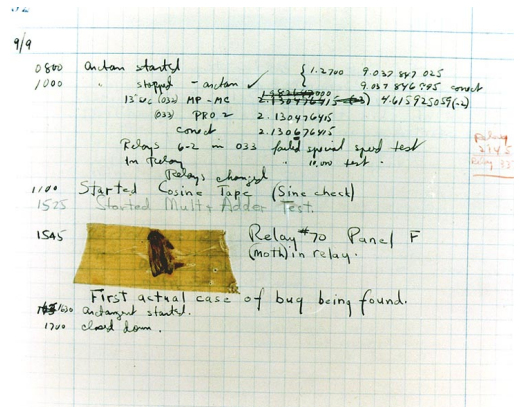 9/9
0800 Antan started
1000 " stopped - antan ✓ { 1.2700 9.037 847 025
9.037 846 995 correct
13"uc (032) MP - MC 2.130476415 4.615925059(-2)
(033) PRO 2 2.130476415
correct 2.130676415
Relays 6-2 in 033 failed special speed test
in relay " 10,000 test .
Relays changed
1100 Started Cosine Tape (Sine check)
1525 Started Mult+ Adder Test.
1545 Relay #70 Panel F
(moth) in relay.
First actual case of bug being found.
antangent started.
1700 closed down.
Relay